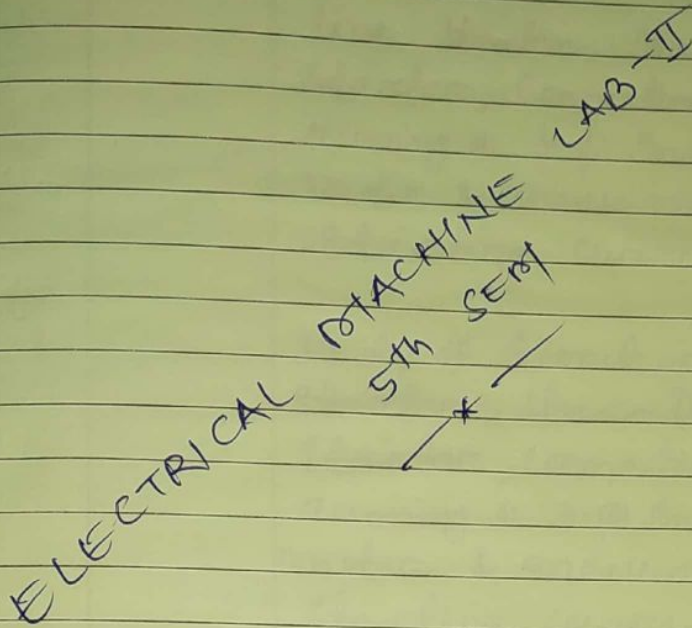 ELECTRICAL MACHINE LAB-II
5th SEM